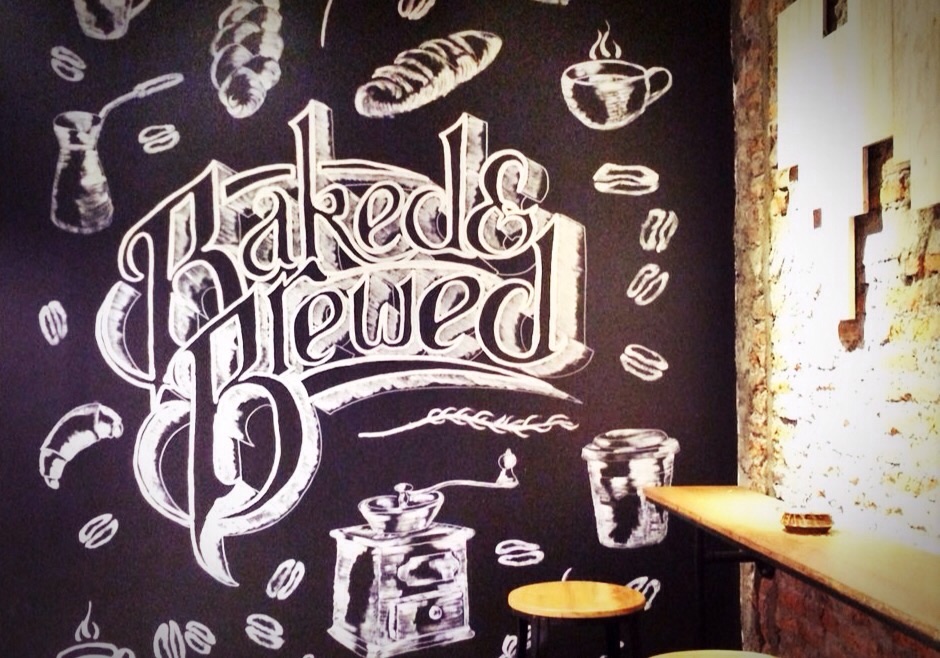 Baked &
Brewed